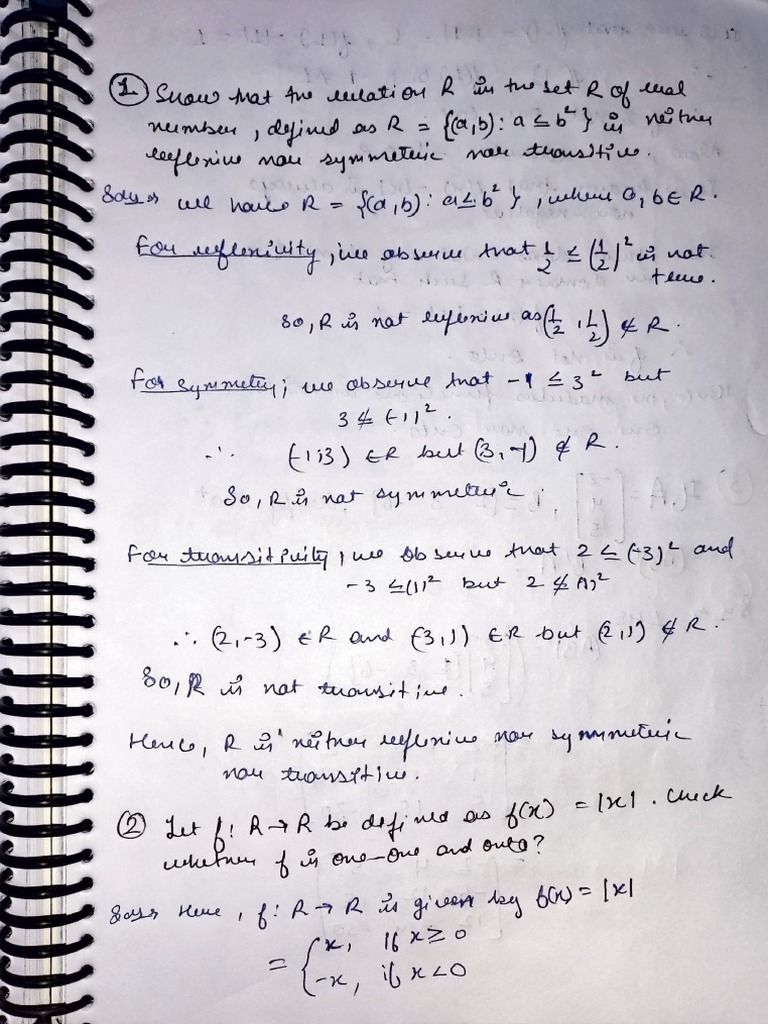 ① Show that the relation R in the set R of real
number, defined as R = {(a,b): a ≤ b²} is neither
reflexive nor symmetric nor transitive.
Soln we have R = {(a,b): a ≤ b²}, where a, b ∈ R.
For reflexivity, we observe that 1/2 ≤ (1/2)² is not
true.
So, R is not reflexive as (1/2, 1/2) ∉ R.
For symmetry; we observe that -1 ≤ 3² but
3 ≰ (-1)².
∴ (-1,3) ∈R but (3,-1) ∉ R.
So, R is not symmetric.
For transitivity, we observe that 2 ≤ (-3)² and
-3 ≤(1)² but 2 ≰ (1)²
∴ (2,-3) ∈ R and (-3,1) ∈R but (2,1) ∉ R.
So, R is not transitive.
Hence, R is neither reflexive nor symmetric
nor transitive.
② Let f: R→R be defined as f(x) = |x|. Check
whether f is one-one and onto?
Soln Here, f: R→R is given by f(x) = |x|
= {x, if x ≥ 0
-x, if x < 0